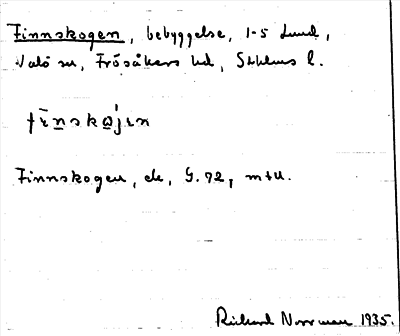 Finnskogen, bebyggelse, 1-5 Lund,
Valö sn, Frösåkers hd, Sthlms l.
fìnskøjɛn
Finnskogen, de, G. 92, mtU.
Rickard Norrman 1935.